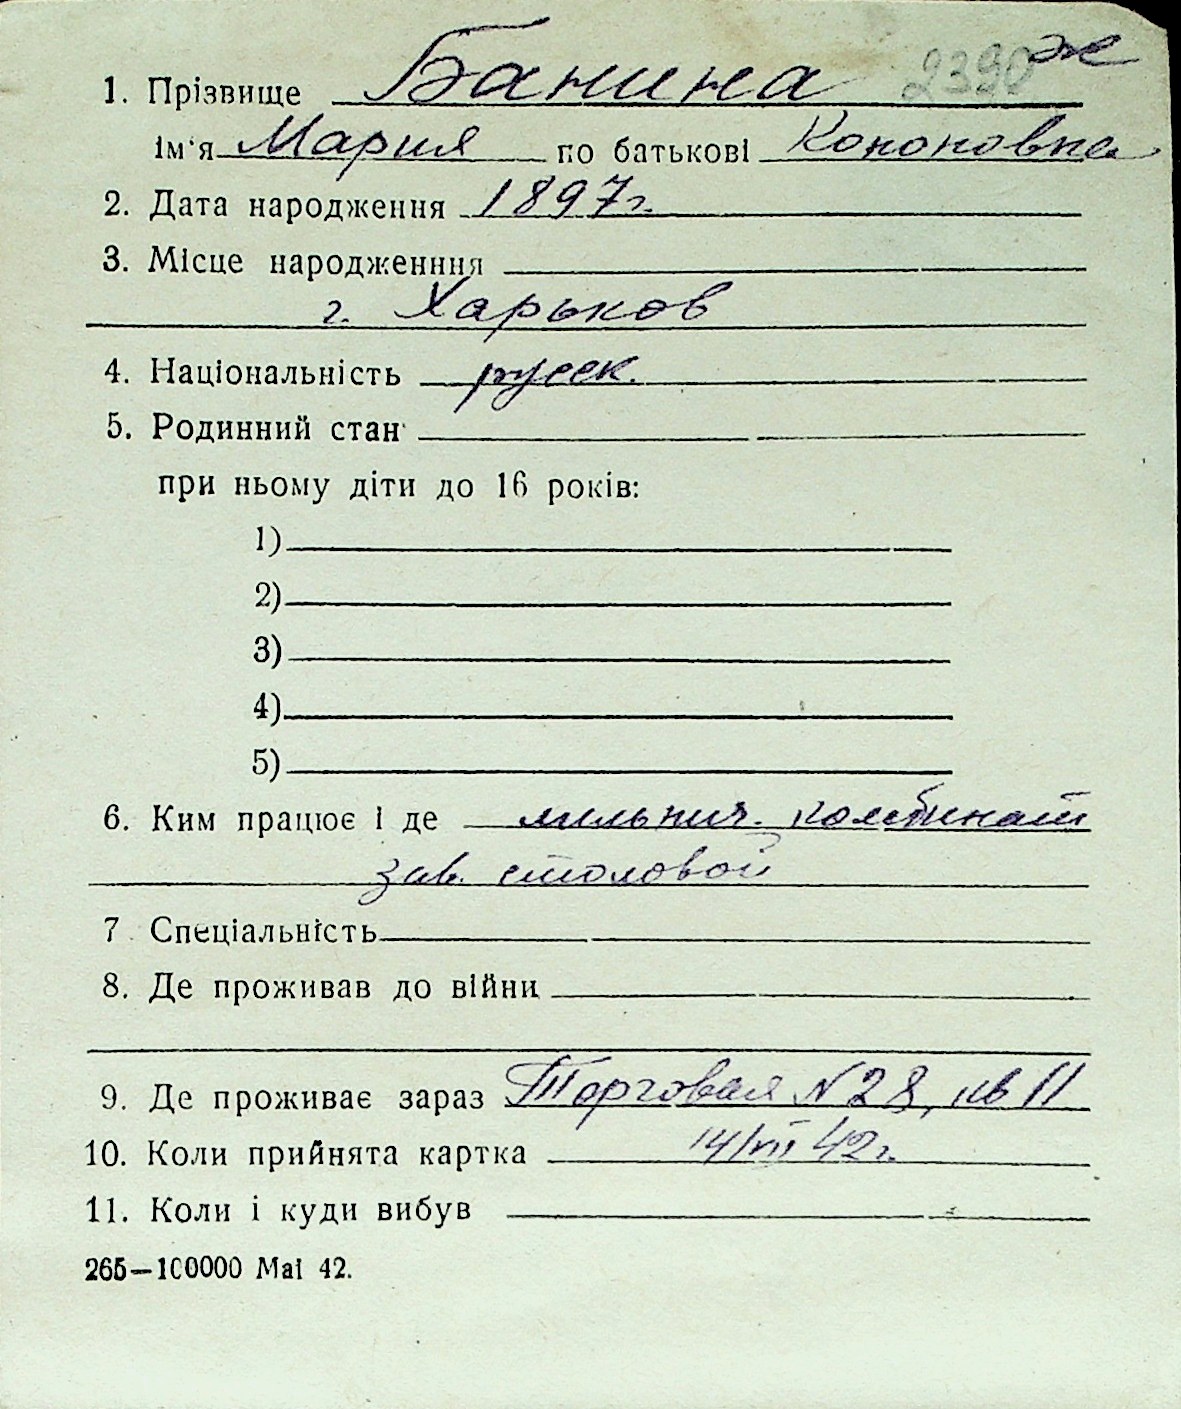 1. Прізвище Банина 2390 ж
ім'я Мария по батькові Кононовна
2. Дата народження 1897г.
3. Місце народженння
г. Харьков
4. Національність русск.
5. Родинний стан
при ньому діти до 16 років:
1)
2)
3)
4)
5)
6. Ким працює і де мильнич. комбинат
зав. столовой
7. Спеціальність
8. Де проживав до війни
9. Де проживає зараз Торговая N 28, кв 11
10. Коли прийнята картка 14/VII 42г.
11. Коли і куди вибув
265—100000 Маі 42.